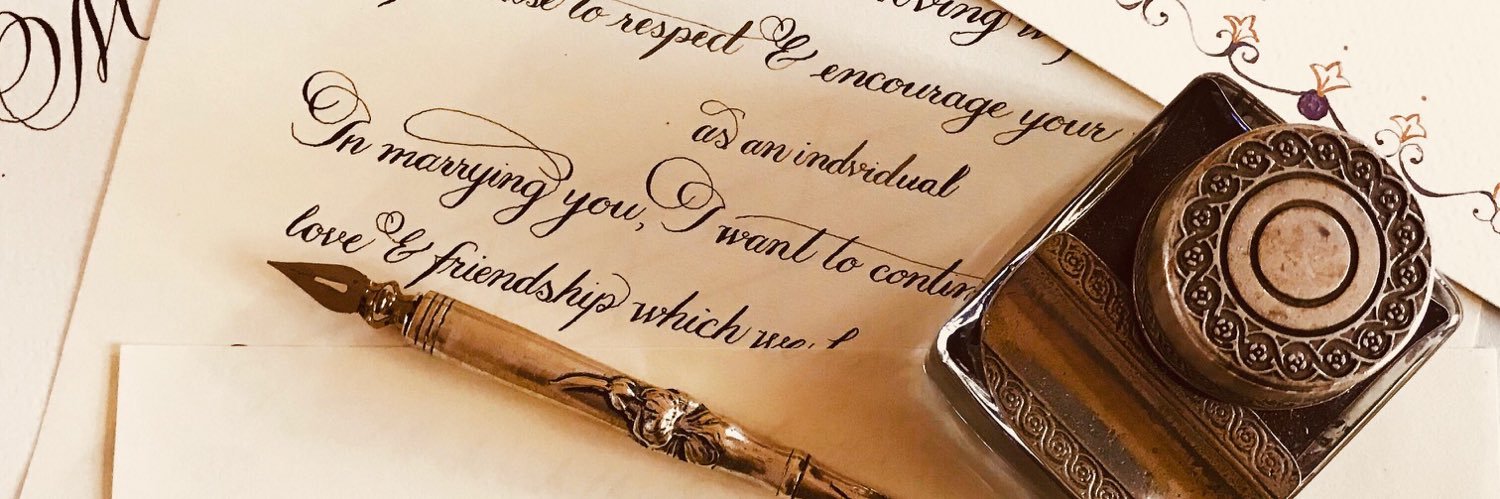 M
loving
to respect & encourage your
as an indvidual
In marrying you, I want to contin
love & friendship which